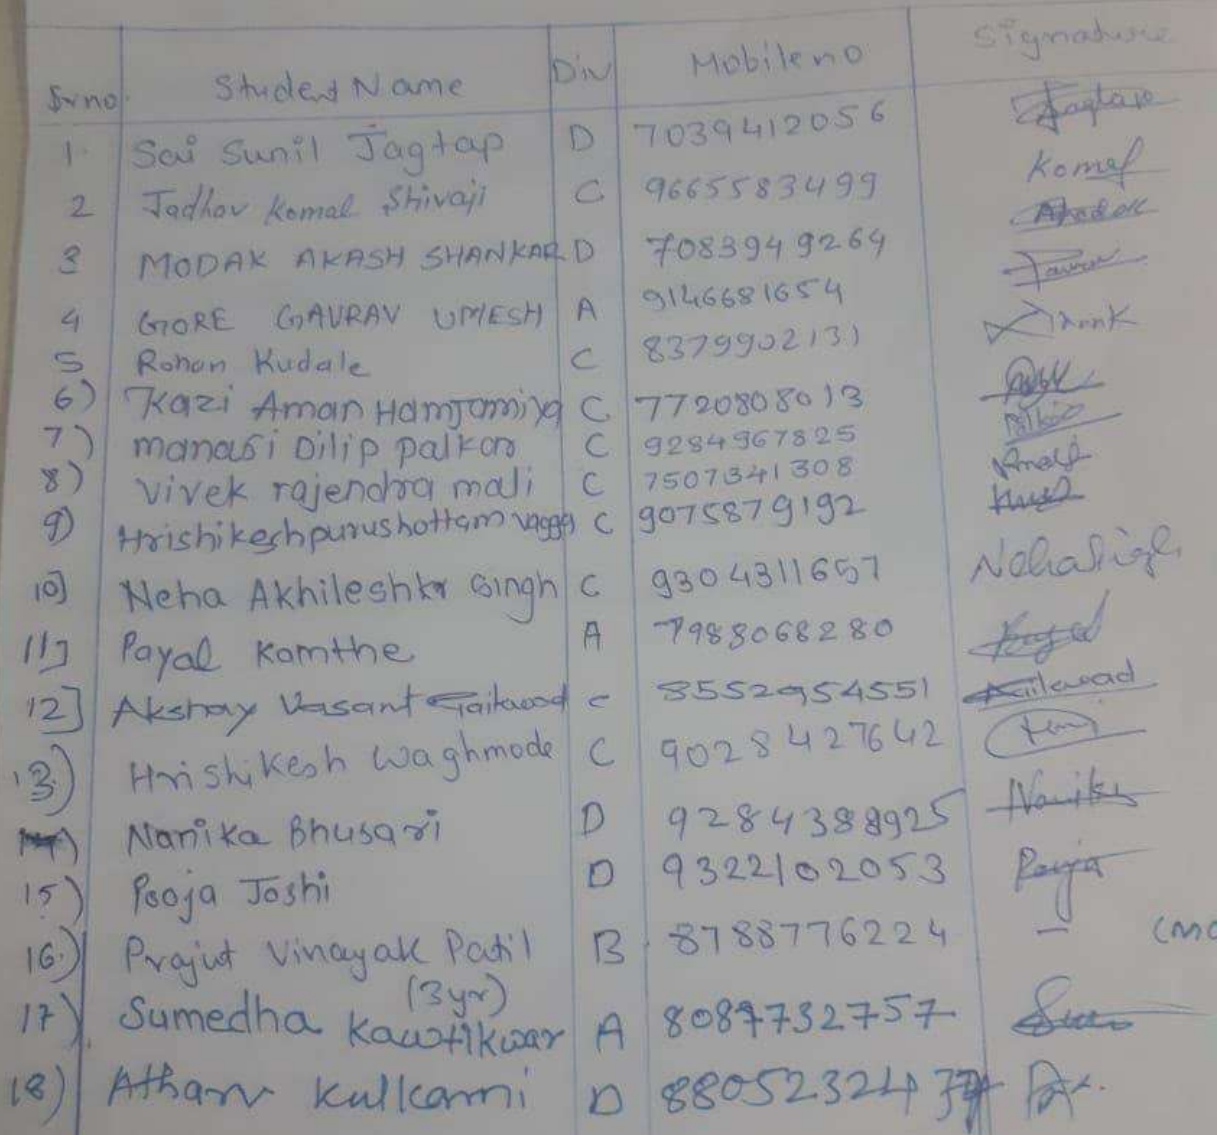 Srno. Student Name Div Mobile no Signature
1. Sai Sunil Jagtap D 7039412056 Jagtap
2 Jadhav Komal Shivaji C 9665583499 Komal
3 MODAK AKASH SHANKAR D 7083949264
4 GORE GAURAV UMESH A 9146681654
5 Rohan Kudale C 8379902131
6) Kazi Aman Hamjamiya C 7720808013
7) manasi Dilip palkar C 9284967825
8) vivek rajendra mali C 7507341308
9) Hrishikesh purushottam C 9075879192
10] Neha Akhileshkr Singh C 9304311657 Neha Singh
11] Payal Kamthe A 7988068280
12] Akshay Vasant Gaikwad C 8552954551 Gaikwad
13.) Hrishikesh Waghmode C 9028427642
14) Nanika Bhusari D 9284388925
15) Pooja Joshi D 9322102053 Pooja
16.) Prajut Vinayak Patil B 8788776224 - (MC
(3yr)
17) Sumedha Kawtikwar A 8087732757
18) Atharv Kulkarni D